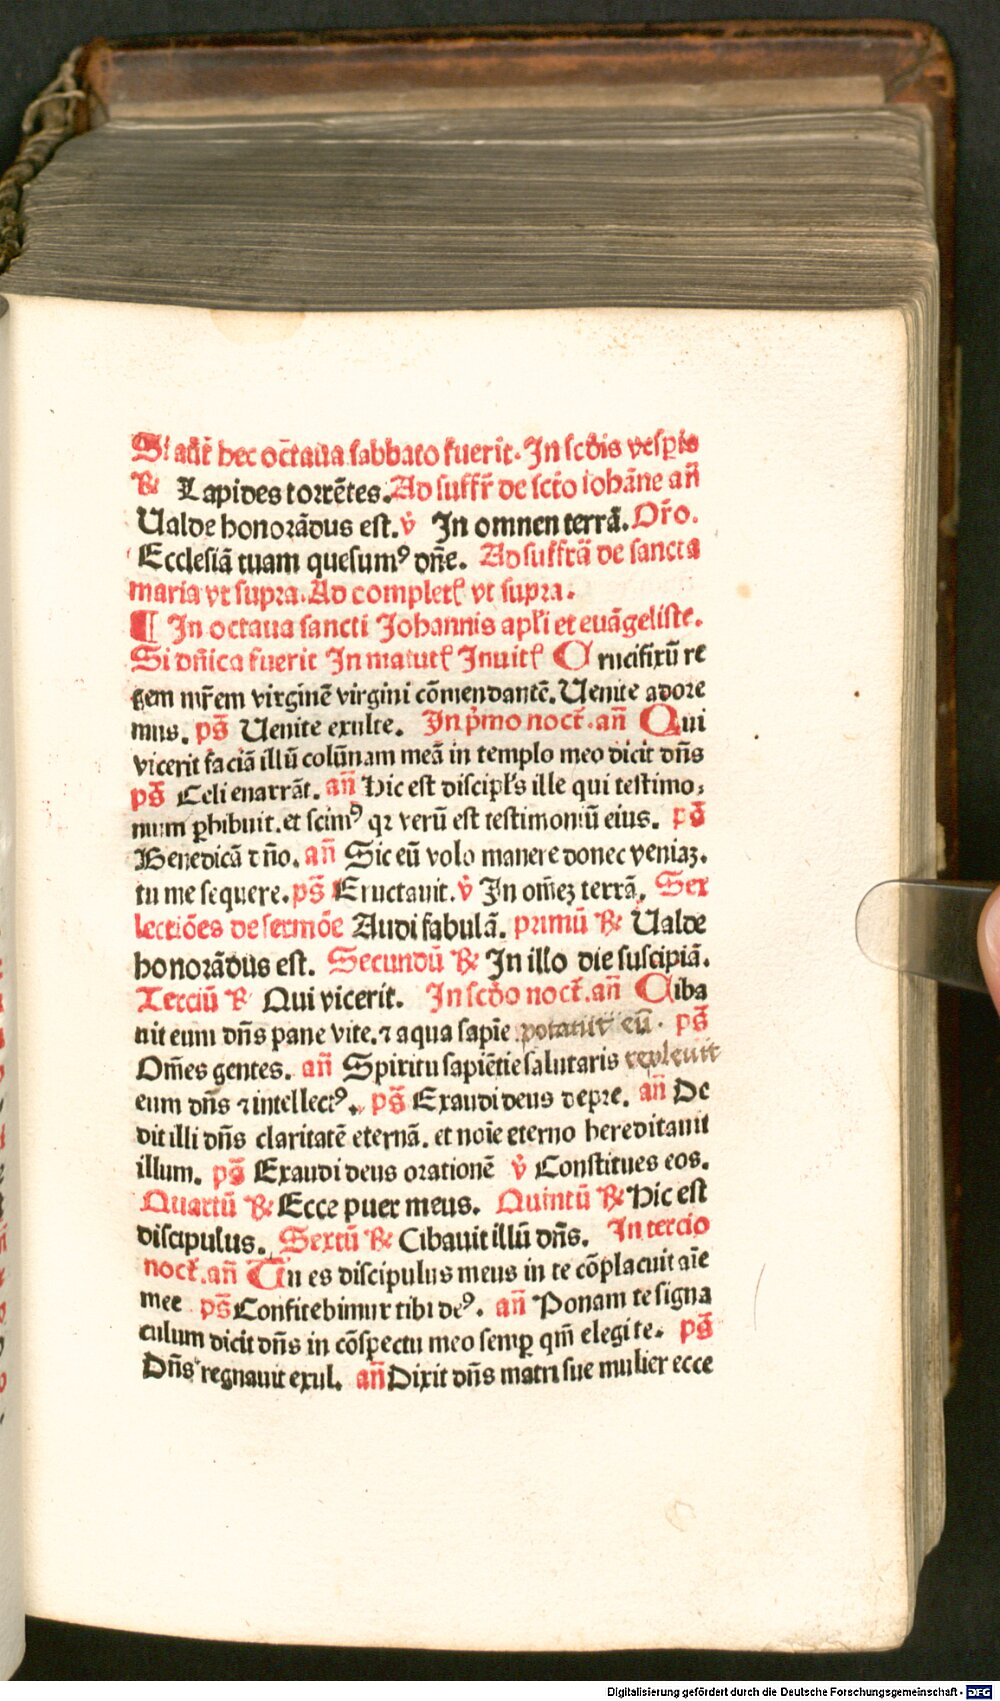 Si aūt hec octaua sabbato fuerit. In scd̄is vesp̄is
℟ Lapides torrētes. Ad suffr̄ de scto iohāne an̄
Ualde honorādus est. v̄ In omnen terrā. Or̄o.
Ecclesiā tuam quesumꝰ dn̄e. Ad suffrā de sancta
maria vt supra. Ad completꝭ vt supra.
¶ In octaua sancti Johannis apl̄i et euāgeliste.
Si dn̄ica fuerit In matutꝭ Inuitꝭ Crucifixū re
gem mr̄em virginē virgini cōmendantē. Uenite adore
mus. ps̄ Uenite exulte. In pͥmo noct̄. an̄ Qui
vicerit faciā illū colūnam meā in templo meo dicit dn̄s
ps̄ Celi enarrāt. an̄ Hic est discipl̄s ille qui testimo⸗
nium ꝑhibuit. et scimꝰ qꝛ verū est testimoniū eius. ps̄
Benedicā dn̄o. an̄ Sic eū volo manere donec veniaꝫ.
tu me sequere. ps̄ Eructauit. v̄ In om̄eꝫ terrā. Sex
lectiōes de sermōe Audi fabulā. primū ℟ Ualde
honorādus est. Secundū ℟ In illo die suscipiā.
Terciū ℟ Qui vicerit. In scd̄o noct̄. an̄ Ciba
uit eum dn̄s pane vite. ⁊ aqua sapīe potauit eū. ps̄
Om̄es gentes. an̄ Spiritu sapiētie salutaris repleuit
eum dn̄s ⁊ intellectꝰ. ps̄ Exaudi deus depre. an̄ De
dit illi dn̄s claritatē eternā. et noīe eterno hereditauit
illum. ps̄ Exaudi deus orationē v̄ Constitues eos.
Quartū ℟ Ecce puer meus. Quintū ℟ Hic est
discipulus. Sextū ℟ Cibauit illū dn̄s. In tercio
noct̄. an̄ Tu es discipulus meus in te cōplacuit aīe
mee ps̄ Confitebimur tibi deꝰ. an̄ Ponam te signa
culum dicit dn̄s in cōspectu meo semꝑ qm̄ elegi te. ps̄
Dn̄s regnauit exul. an̄ Dixit dn̄s matri sue mulier ecce
Digitalisierung gefördert durch die Deutsche Forschungsgemeinschaft - DFG